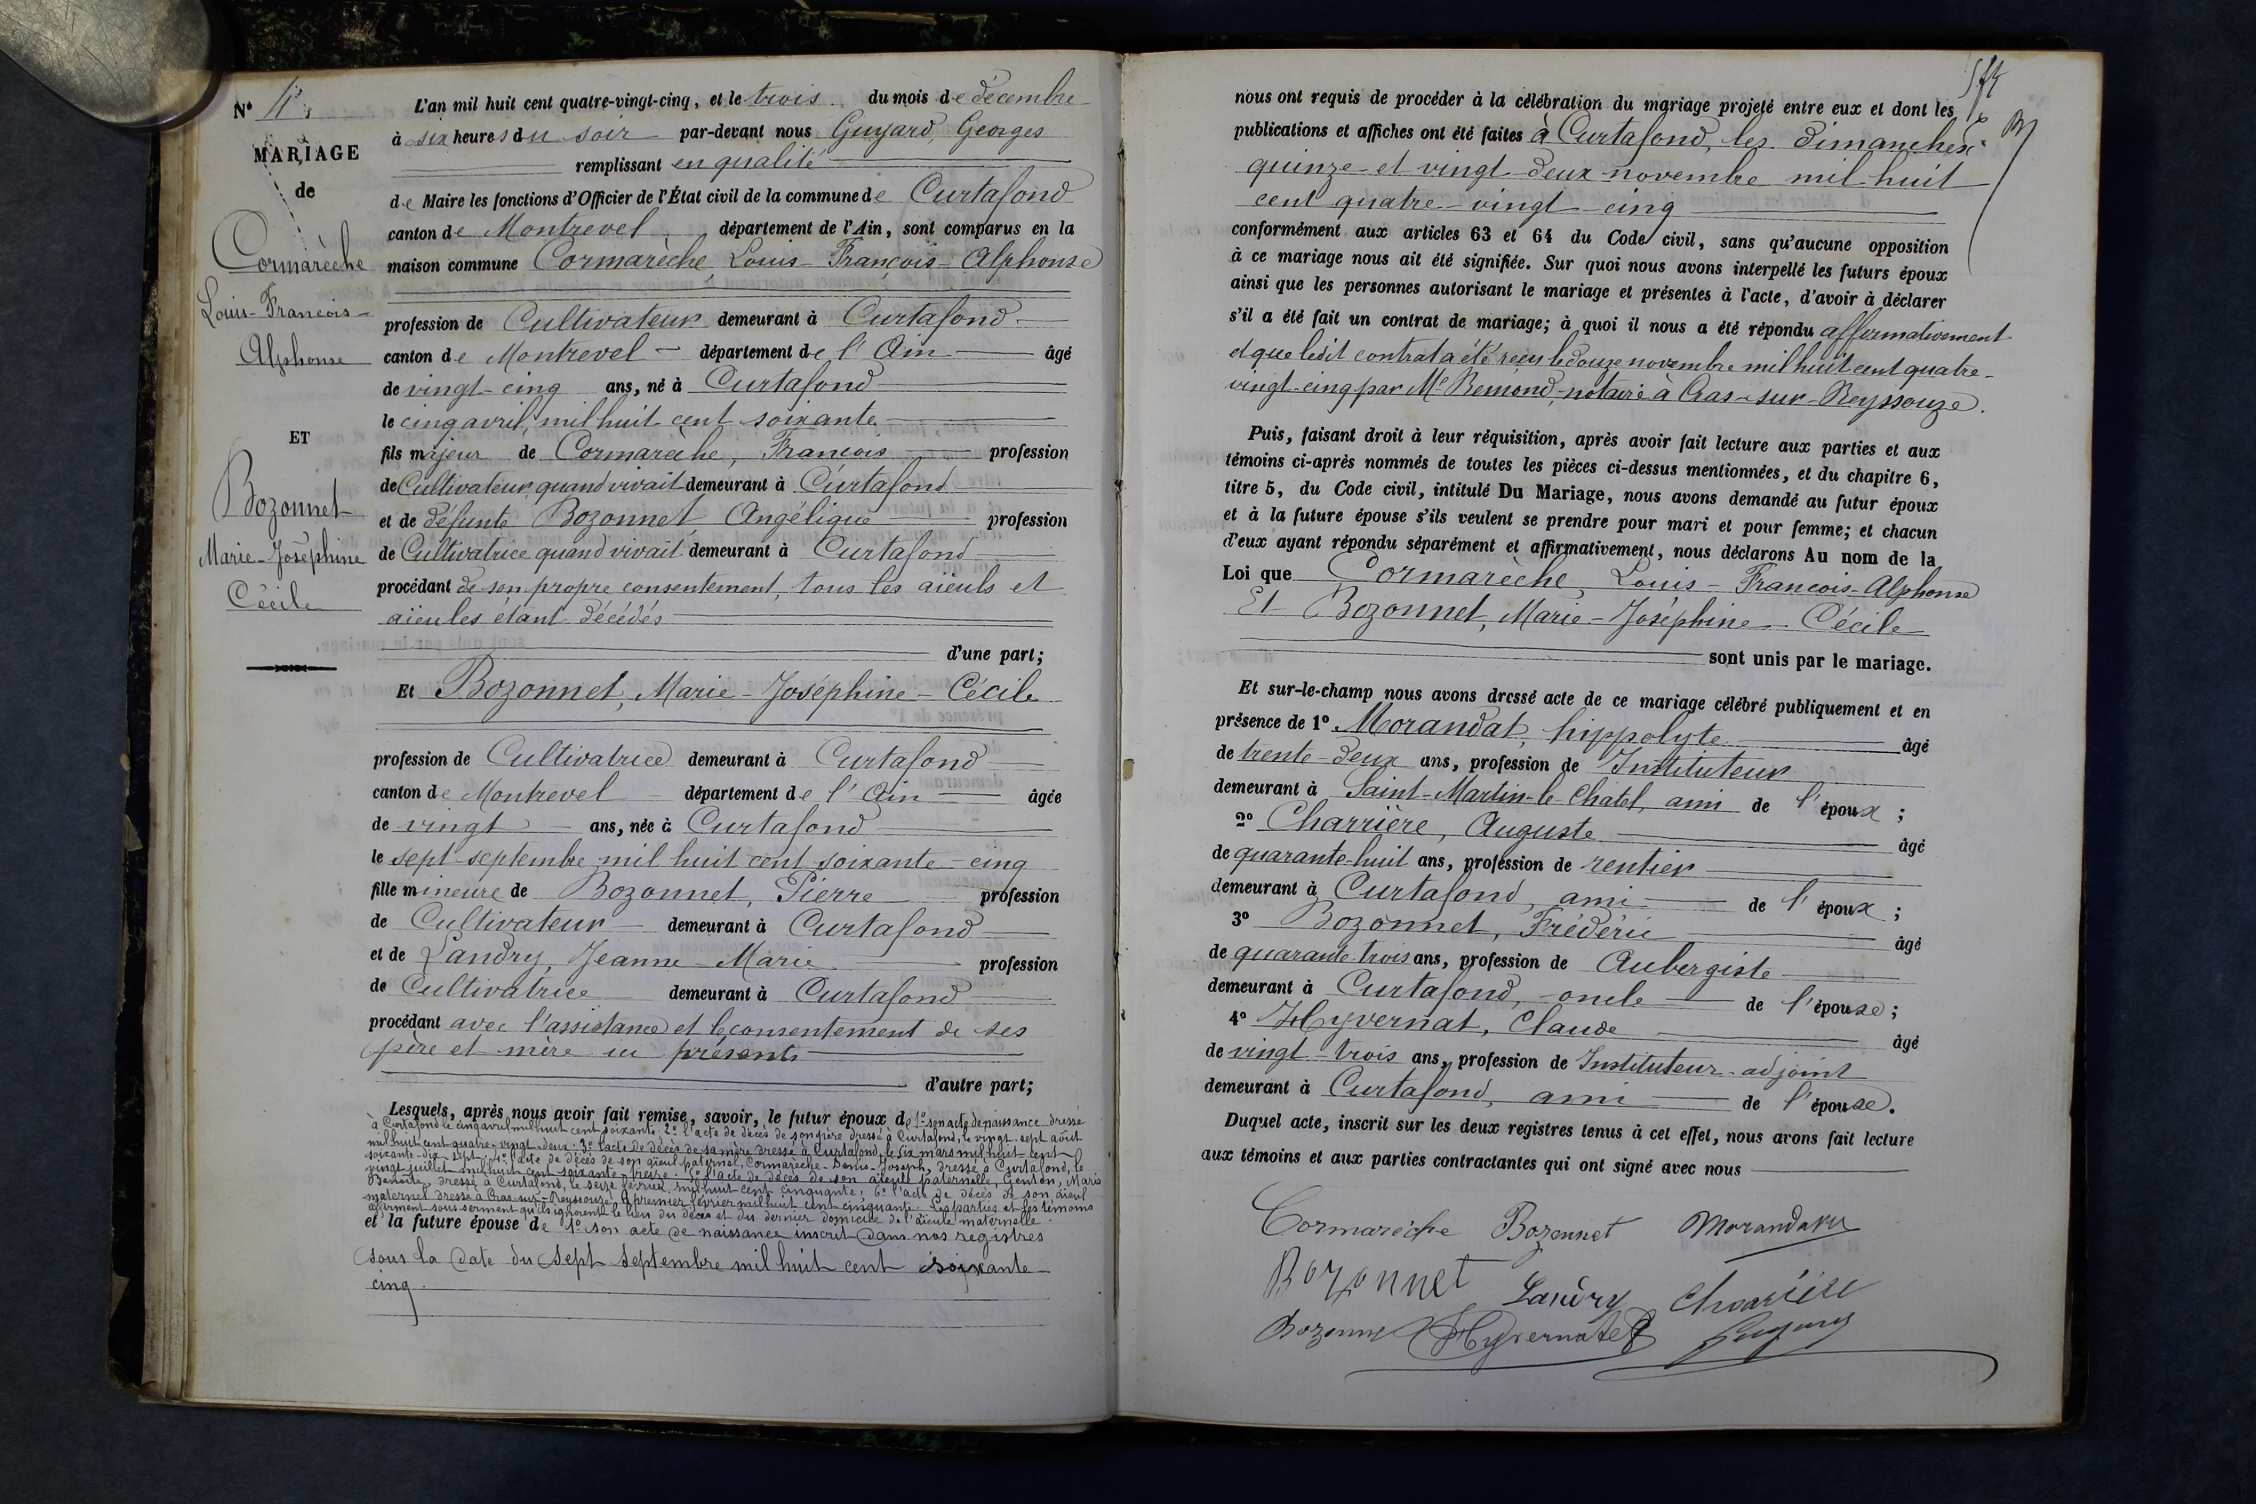 N° 4
MARIAGE
de
Cormarèche
Louis-François-
Alphonse
ET
Bozonnet
Marie-Joséphine
Cécile
L'an mil huit cent quatre-vingt-cinq, et le trois du mois de décembre
à six heures du soir par-devant nous Guyard, Georges
remplissant en qualité
de Maire les fonctions d'Officier de l'État civil de la commune de Curtafond
canton de Montrevel département de l'Ain, sont comparus en la
maison commune Cormarèche, Louis-François-Alphonse
profession de Cultivateur demeurant à Curtafond
canton de Montrevel département de l'Ain âgé
de vingt-cinq ans, né à Curtafond
le cinq avril, mil huit cent soixante
fils majeur de Cormarèche, François profession
de Cultivateur quand vivait demeurant à Curtafond
et de défunte Bozonnet Angélique profession
de Cultivatrice quand vivait demeurant à Curtafond
procédant de son propre consentement, tous les aïeuls et
aïeules étant décédés
d'une part;
Et Bozonnet, Marie-Joséphine-Cécile
profession de Cultivatrice demeurant à Curtafond
canton de Montrevel département de l'Ain âgée
de vingt ans, née à Curtafond
le sept septembre mil huit cent soixante-cinq
fille mineure de Bozonnet, Pierre profession
de Cultivateur demeurant à Curtafond
et de Landry, Jeanne-Marie profession
de Cultivatrice demeurant à Curtafond
procédant avec l'assistance et le consentement de ses
père et mère ici présents
d'autre part;
Lesquels, après nous avoir fait remise, savoir, le futur époux de 1° son acte de naissance dressé
à Curtafond le cinq avril mil huit cent soixante. 2° l'acte de décès de son père dressé à Curtafond, le vingt-sept août
mil huit cent quatre-vingt-deux. 3° l'acte de décès de sa mère dressé à Curtafond, le six mars mil huit-cent-
soixante-dix-sept. 4° l'acte de décès de son aïeul paternel, Cormarèche-Denis-Joseph, dressé à Curtafond, le
vingt juillet mil huit cent soixante-treize. 5° l'acte de décès de son aïeule paternelle, Genton, Marie
Benoite, dressé à Curtafond, le seize février mil huit cent cinquante; 6° l'acte de décès de son aïeul
maternel dressé à Cras-sur-Reyssouze, le premier février mil huit cent cinquante. Les parties et les témoins
affirment sous serment qu'ils ignorent le lieu du décès et du dernier domicile de l'aïeule maternelle.
et la future épouse de 1° son acte de naissance inscrit dans nos registres
sous la date du sept septembre mil huit cent soixante-
cinq.
nous ont requis de procéder à la célébration du mariage projeté entre eux et dont les
publications et affiches ont été faites à Curtafond, les dimanches
quinze et vingt-deux novembre mil huit
cent quatre-vingt-cinq
conformément aux articles 63 et 64 du Code civil, sans qu'aucune opposition
à ce mariage nous ait été signifiée. Sur quoi nous avons interpellé les futurs époux
ainsi que les personnes autorisant le mariage et présentes à l'acte, d'avoir à déclarer
s'il a été fait un contrat de mariage; à quoi il nous a été répondu affirmativement
et que ledit contrat a été reçu le douze novembre mil huit cent quatre-
vingt-cinq par Me Remond, notaire à Cras-sur-Reyssouze.
Puis, faisant droit à leur réquisition, après avoir fait lecture aux parties et aux
témoins ci-après nommés de toutes les pièces ci-dessus mentionnées, et du chapitre 6,
titre 5, du Code civil, intitulé Du Mariage, nous avons demandé au futur époux
et à la future épouse s'ils veulent se prendre pour mari et pour femme; et chacun
d'eux ayant répondu séparément et affirmativement, nous déclarons Au nom de la
Loi que Cormarèche, Louis-François-Alphonse
Et Bozonnet, Marie-Joséphine-Cécile
sont unis par le mariage.
Et sur-le-champ nous avons dressé acte de ce mariage célébré publiquement et en
présence de 1° Morandat, hippolyte âgé
de trente-deux ans, profession de Instituteur
demeurant à Saint-Martin-le-Chatel, ami de l'époux;
2° Charrière, Auguste âgé
de quarante-huit ans, profession de rentier
demeurant à Curtafond, ami de l'époux;
3° Bozonnet, Frédéric âgé
de quarante-trois ans, profession de Aubergiste
demeurant à Curtafond, oncle de l'épouse;
4° Hyvernat, Claude âgé
de vingt-trois ans, profession de Instituteur-adjoint
demeurant à Curtafond, ami de l'épouse.
Duquel acte, inscrit sur les deux registres tenus à cet effet, nous avons fait lecture
aux témoins et aux parties contractantes qui ont signé avec nous
Cormarèche Bozonnet Morandat
Bozonnet Landry Charrière
Bozonnet Hyvernat Guyard